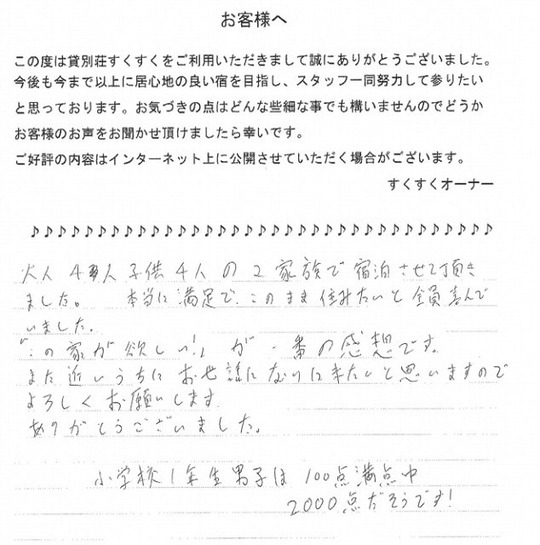 お客様へ
この度は貸別荘すくすくをご利用いただきまして誠にありがとうございました。
今後も今まで以上に居心地の良い宿を目指し、スタッフ一同努力して参りたい
と思っております。お気づきの点はどんな些細な事でも構いませんのでどうか
お客様のお声をお聞かせ頂けましたら幸いです。
ご好評の内容はインターネット上に公開させていただく場合がございます。
すくすくオーナー
♪♪♪♪♪♪♪♪♪♪♪♪♪♪♪♪♪♪♪♪♪♪♪♪♪♪♪♪♪♪♪♪♪♪♪
大人4人子供4人の2家族で宿泊させて頂き
ました。 本当に満足で、このまま住みたいと全員喜んで
いました。
「この家が欲しい!」が一番の感想です。
また近いうちにお世話になりに来たいと思いますので
よろしくお願いします
ありがとうございました。
小学校1年生男子は100点満点中
2000点だそうです!